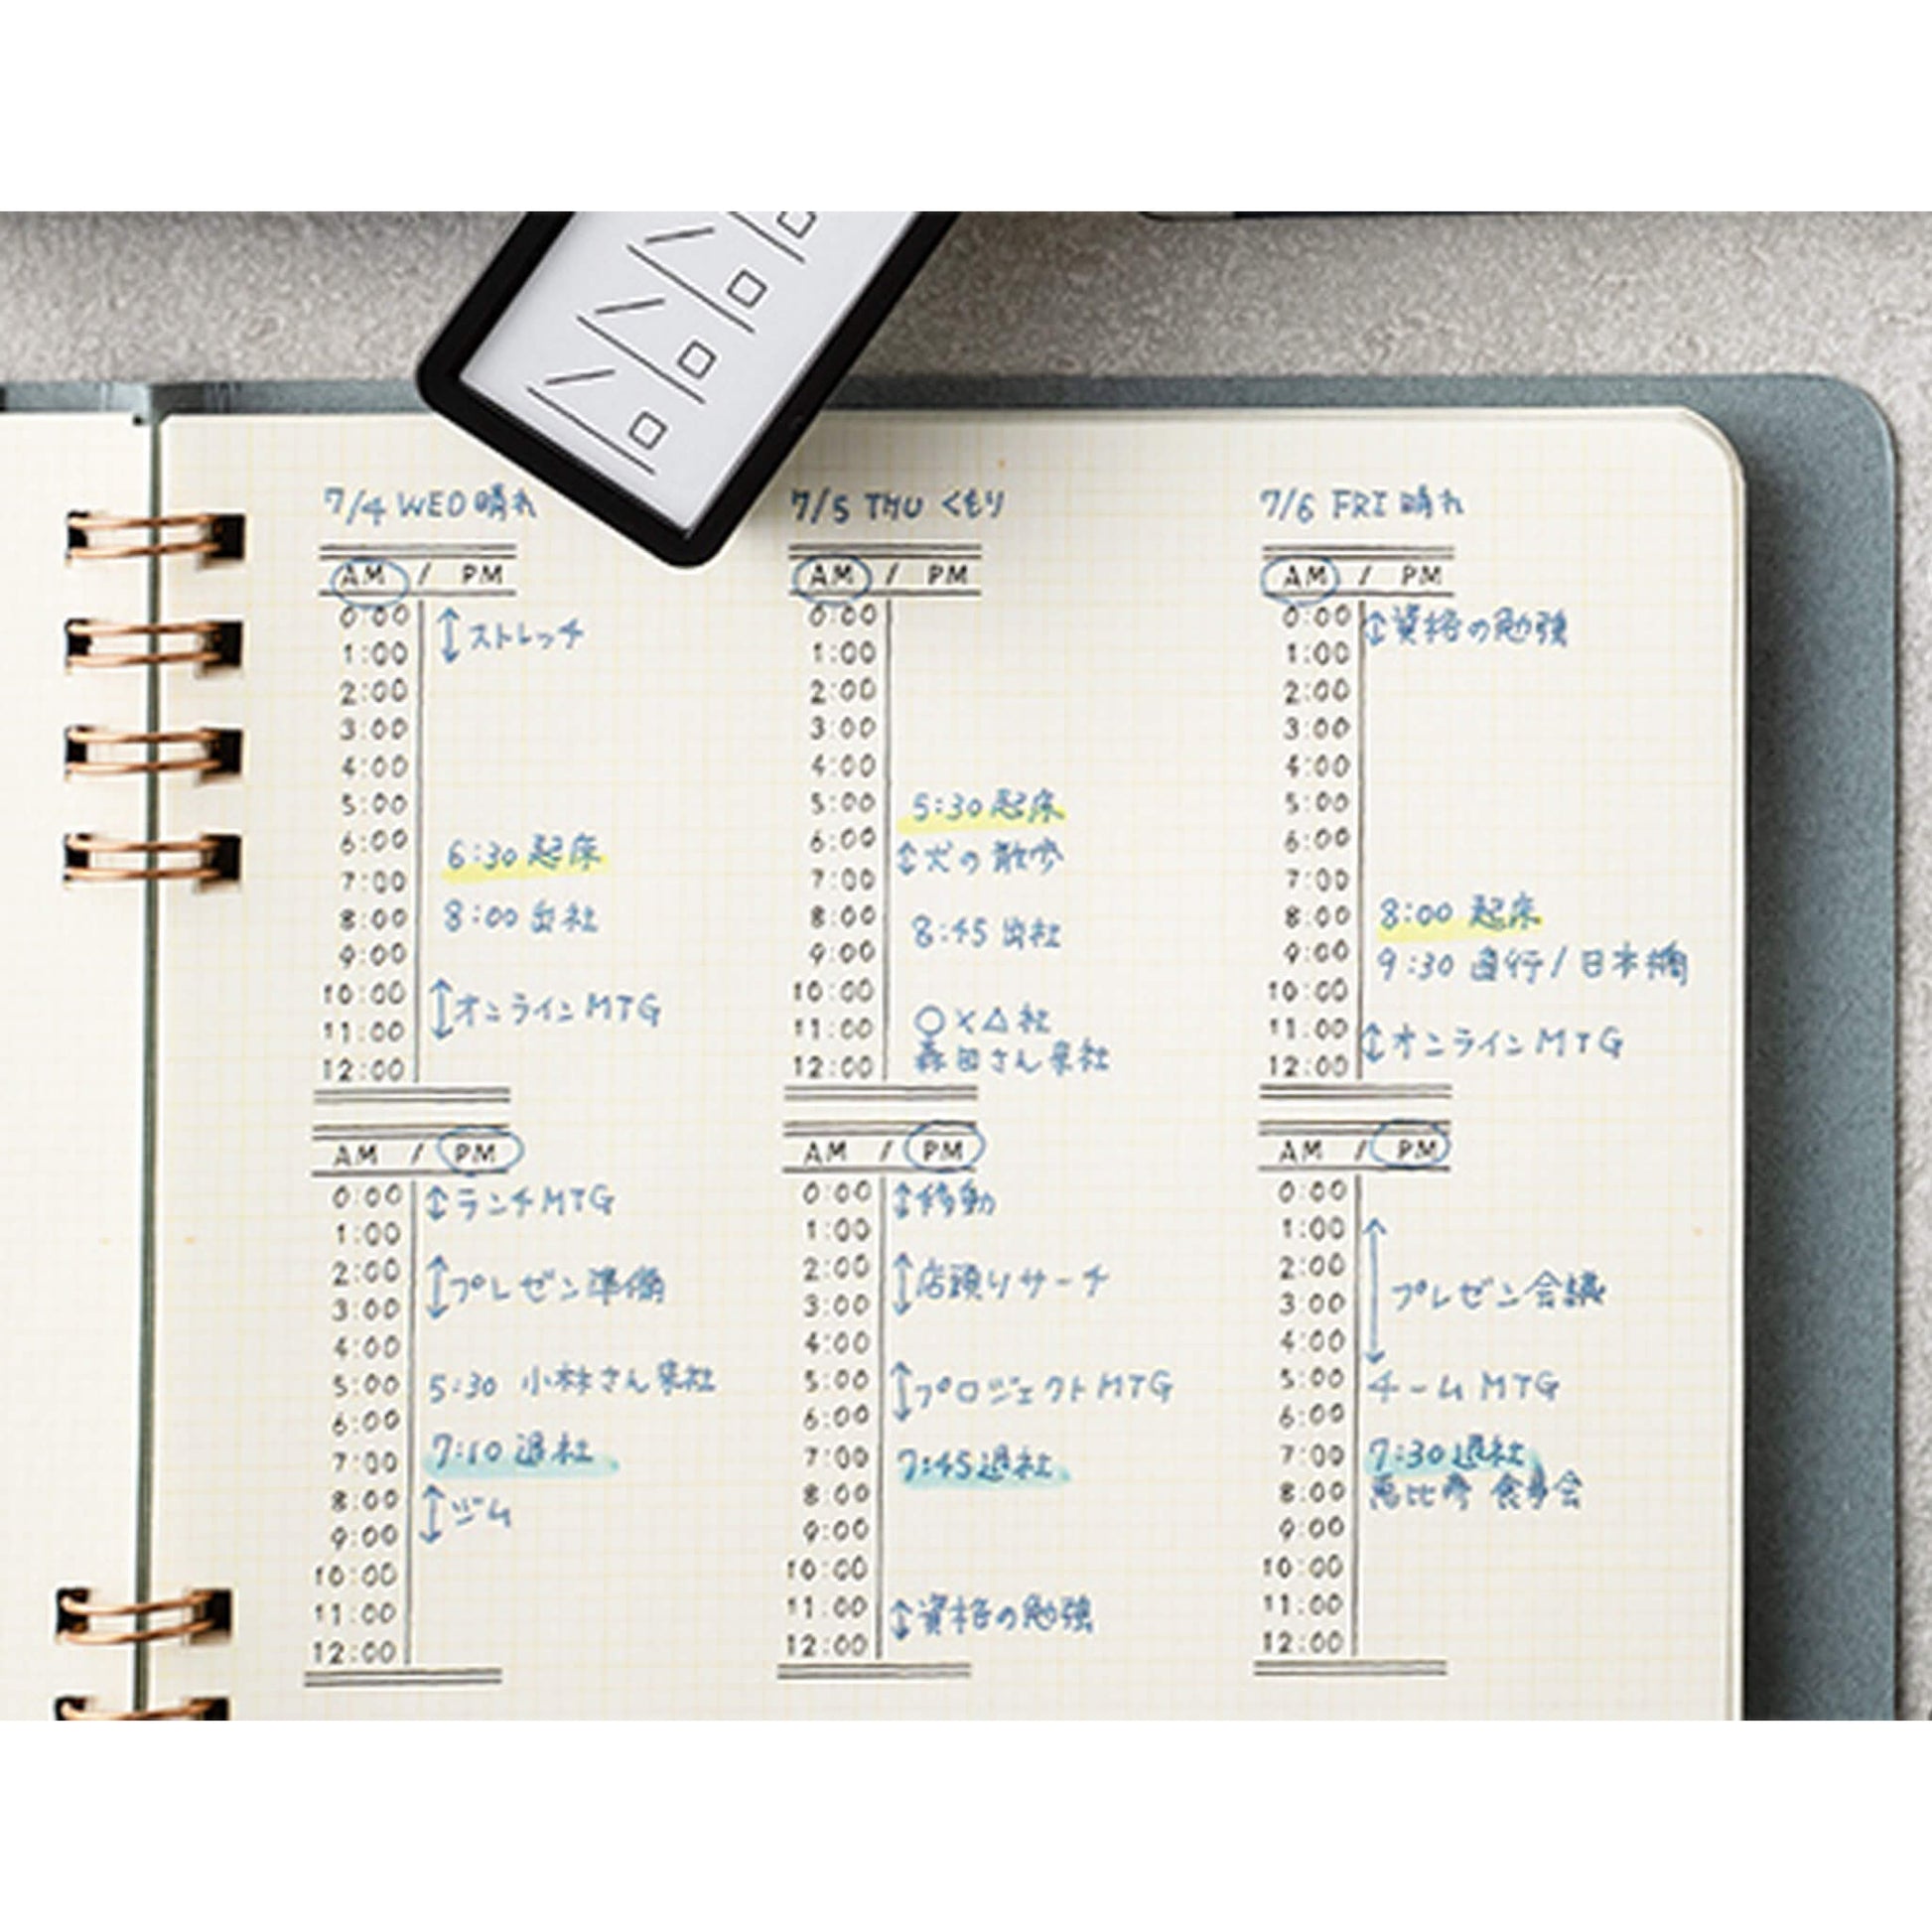 7/4 WED 晴れ
AM / PM
0:00 ストレッチ
1:00
2:00
3:00
4:00
5:00
6:00
6:30 起床
7:00
8:00 8:00 出社
9:00
10:00 オンラインMTG
11:00
12:00
AM / PM
0:00 ランチMTG
1:00
2:00 プレゼン準備
3:00
4:00
5:00 5:30 小林さん来社
6:00
7:00 7:10 退社
8:00 ジム
9:00
10:00
11:00
12:00
7/5 THU くもり
AM / PM
0:00
1:00
2:00
3:00
4:00
5:00 5:30 起床
6:00 犬の散歩
7:00
8:00 8:45 出社
9:00
10:00
11:00 ○×△社
12:00 森田さん来社
AM / PM
0:00 移動
1:00
2:00 店頭リサーチ
3:00
4:00
5:00 プロジェクトMTG
6:00
7:00 7:45 退社
8:00
9:00
10:00
11:00 資格の勉強
12:00
7/6 FRI 晴れ
AM / PM
0:00 資格の勉強
1:00
2:00
3:00
4:00
5:00
6:00
7:00
8:00 8:00 起床
9:00 9:30 直行/日本橋
10:00
11:00 オンラインMTG
12:00
AM / PM
0:00
1:00
2:00
3:00 プレゼン会議
4:00
5:00 チームMTG
6:00
7:00 7:30 退社
8:00 恵比寿 食事会
9:00
10:00
11:00
12:00